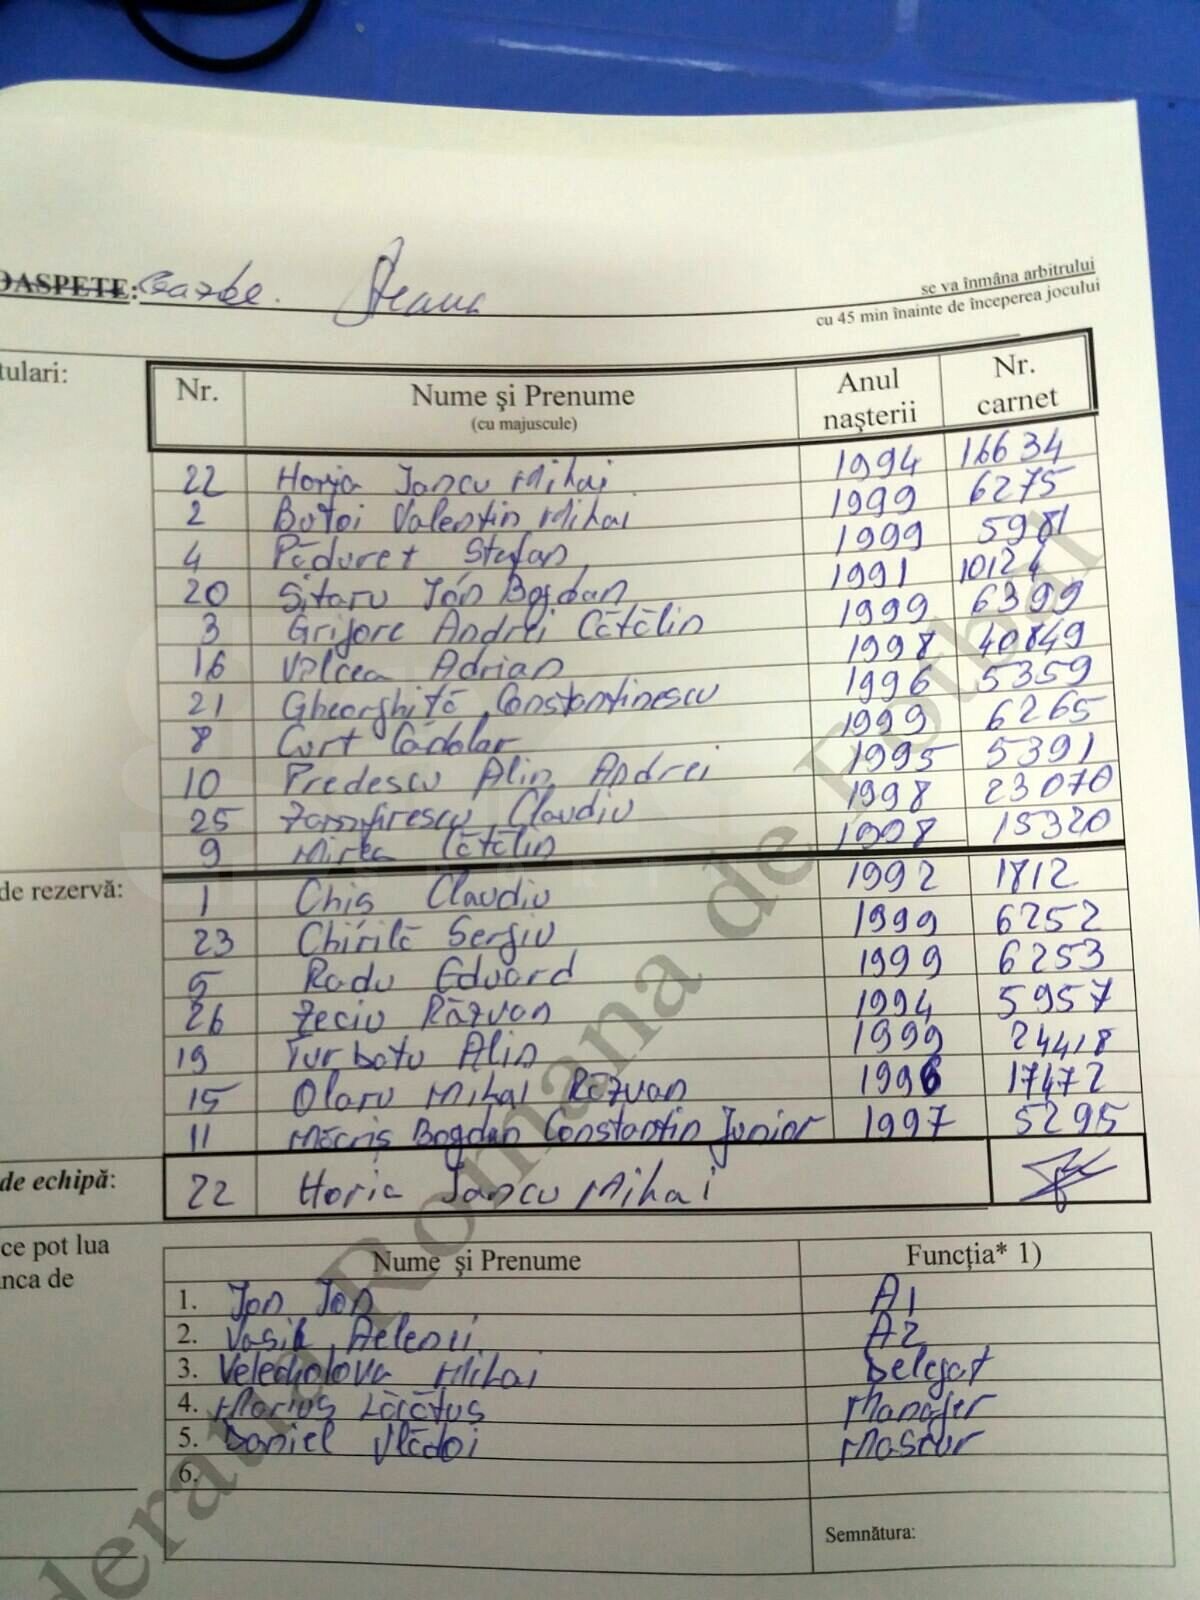 OASPETE: Gazde. Steaua
se va înmâna arbitrului
cu 45 min înainte de începerea jocului
tulari:
Nr. Nume şi Prenume (cu majuscule) Anul naşterii Nr. carnet
22 Horia Iancu Mihai 1994 16634
2 Botoi Valentin Mihai 1999 6275
4 Păduret Stefan 1999 5981
20 Sitaru Ion Bogdan 1991 10124
3 Grigore Andrei Cătălin 1999 6399
16 Vâlcea Adrian 1998 40849
21 Gheorghită Constantinescu 1996 5359
8 Curt Cădălar 1999 6265
10 Predescu Alin Andrei 1995 5391
25 Zamfirescu Claudiu 1998 23070
9 Mirea Cătălin 1998 15320
de rezervă:
1 Chis Claudiu 1992 1812
23 Chirilă Sergiu 1999 6252
5 Radu Eduard 1999 6253
26 Zeciu Răzvan 1994 5957
19 Turbatu Alin 1999 24418
15 Olaru Mihai Răzvan 1996 17472
11 Măcriș Bogdan Constantin Junior 1997 5295
de echipă: 22 Horia Iancu Mihai
ce pot lua
nca de
Nume şi Prenume Funcţia* 1)
1. Ion Ion A1
2. Vasil Aelenii A2
3. Mihai Delegat
4. Marius Lăcătuș Manager
5. Daniel Vlădoi Maseur
6.
Semnătura:
deratia Romana de Fotbal